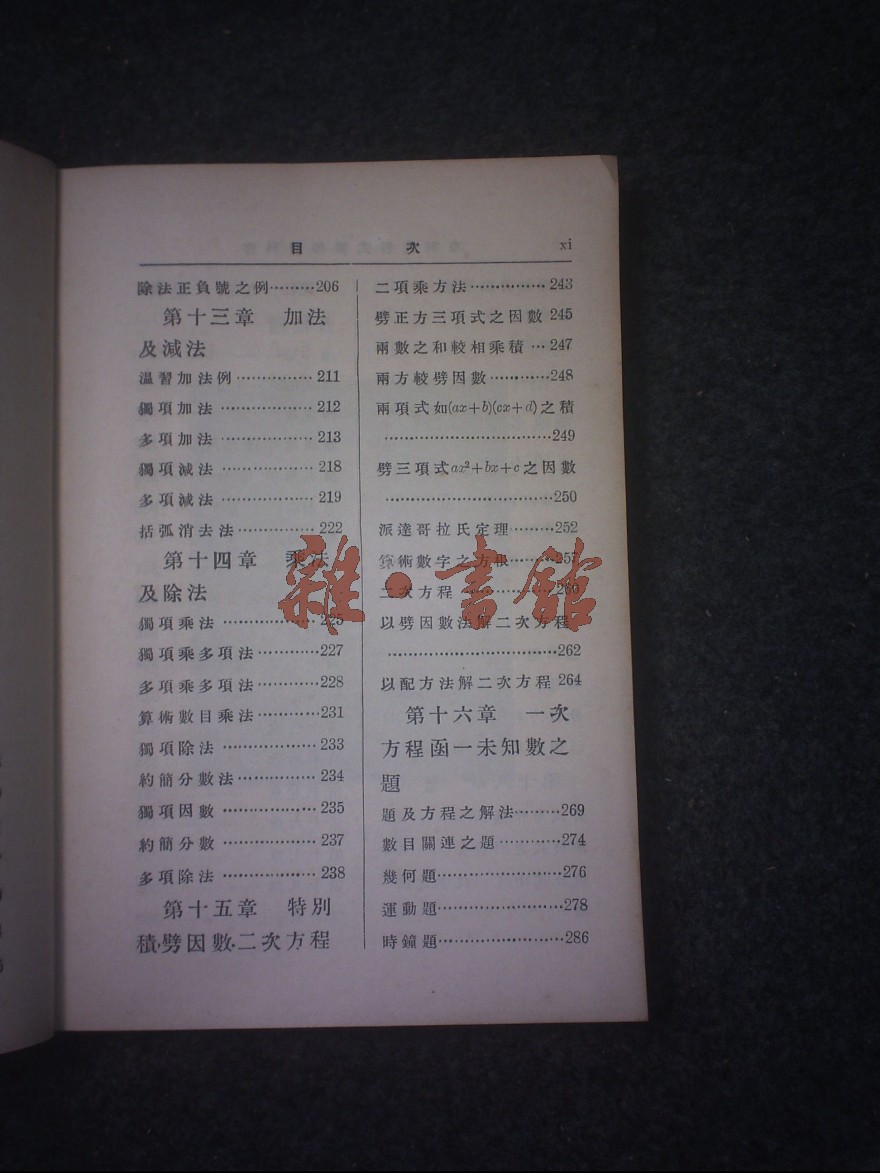 目 次 xi
除法正負號之例………206
第十三章 加法
及減法
温習加法例……………211
獨項加法………………212
多項加法………………213
獨項減法………………218
多項減法………………219
括弧消去法……………222
第十四章 乘法
及除法
獨項乘法………………225
獨項乘多項法…………227
多項乘多項法…………228
算術數目乘法…………231
獨項除法………………233
約簡分數法……………234
獨項因數………………235
約簡分數………………237
多項除法………………238
第十五章 特別
積·劈因數·二次方程
二項乘方法……………243
劈正方三項式之因數 245
兩數之和較相乘積…247
兩方較劈因數…………248
兩項式如(ax+b)(cx+d)之積
……………………………249
劈三項式ax²+bx+c之因數
……………………………250
派達哥拉氏定理………252
算術數字之方根………257
二次方程………………260
以劈因數法解二次方程
……………………………262
以配方法解二次方程 264
第十六章 一次
方程函一未知數之
題
題及方程之解法………269
數目關連之題…………274
幾何題……………………276
運動題……………………278
時鐘題……………………286
雜·書館